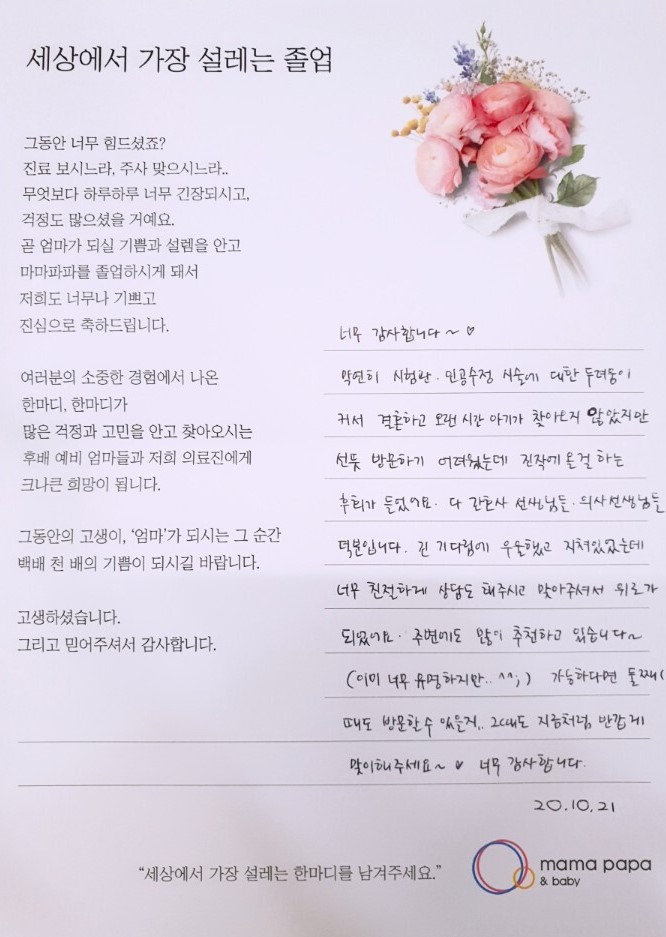 세상에서 가장 설레는 졸업
그동안 너무 힘드셨죠?
진료 보시느라, 주사 맞으시느라..
무엇보다 하루하루 너무 긴장되시고,
걱정도 많으셨을 거예요.
곧 엄마가 되실 기쁨과 설렘을 안고
마마파파를 졸업하시게 돼서
저희도 너무나 기쁘고
진심으로 축하드립니다.
여러분의 소중한 경험에서 나온
한마디, 한마디가
많은 걱정과 고민을 안고 찾아오시는
후배 예비 엄마들과 저희 의료진에게
크나큰 희망이 됩니다.
그동안의 고생이, ‘엄마’가 되시는 그 순간
백배 천 배의 기쁨이 되시길 바랍니다.
고생하셨습니다.
그리고 믿어주셔서 감사합니다.
너무 감사합니다~ ♡
막연히 시험관·인공수정 시술에 대한 두려움이
커서 결혼하고 오랜 시간 아기가 찾아오지 않았지만
선뜻 방문하기 어려웠는데 진작에 올걸 하는
후회가 들었어요. 다 간호사 선생님들·의사선생님들
덕분입니다. 긴 기다림에 우울했고 지쳐있었는데
너무 친절하게 상담도 해주시고 맞아주셔서 위로가
되었어요. 주변에도 많이 추천하고 있습니다~
(이미 너무 유명하지만.. ^^;) 가능하다면 둘째
때도 방문할 수 있을지.. 그때도 지금처럼 반갑게
맞이해주세요~ ♡ 너무 감사합니다.
20.10.21
“세상에서 가장 설레는 한마디를 남겨주세요.”
mama papa
& baby